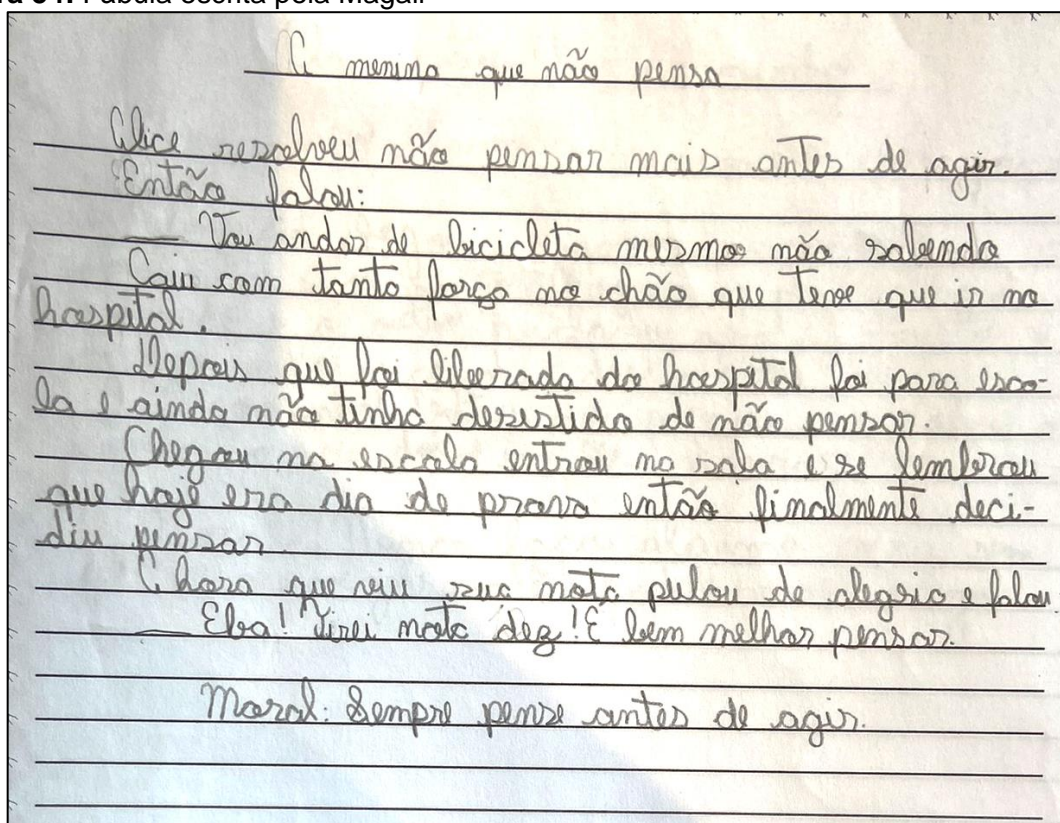 Fábula escrita pela Magali
A menina que não pensa
Alice resolveu não pensar mais antes de agir.
Então falou:
— Vou andar de bicicleta mesmo não sabendo
Caiu com tanta força no chão que teve que ir no
hospital.
Depois que foi liberada do hospital foi para esco-
la e ainda não tinha desistido de não pensar.
Chegou na escola entrou na sala e se lembrou
que hoje era dia de prova então finalmente deci-
diu pensar
A hora que viu sua nota pulou de alegria e falou
— Eba! Tirei nota dez! É bem melhor pensar.
Moral: Sempre pense antes de agir.